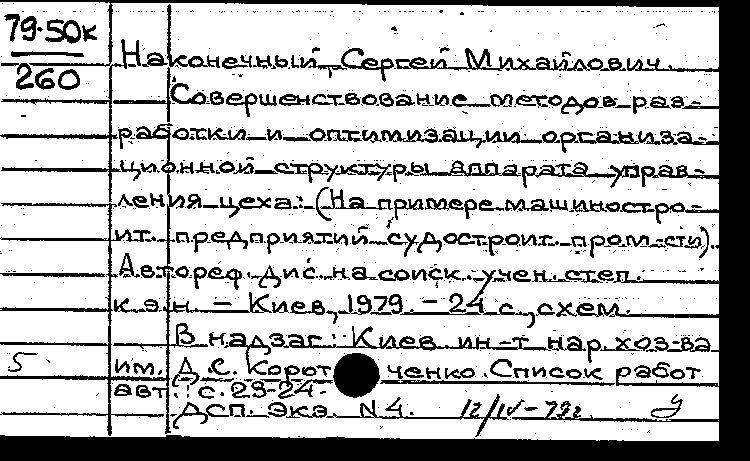 79-50к
260
Наконечный, Сергей Михайлович.
Совершенствование методов раз-
работки и оптимизации организа-
ционной структуры аппарата управ-
ления цеха: (На примере машиностро-
ит. предприятий судостроит. пром-сти).
Автореф. дис. на соиск. учен. степ.
к. э. н. – Киев, 1979. – 24 с., схем.
В надзаг.: Киев. ин-т нар. хоз-ва
5 им. Д. С. Корот ченко. Список работ
авт.: с. 23-24.
ДСП. Экз. N 4. 12/IV-79г.